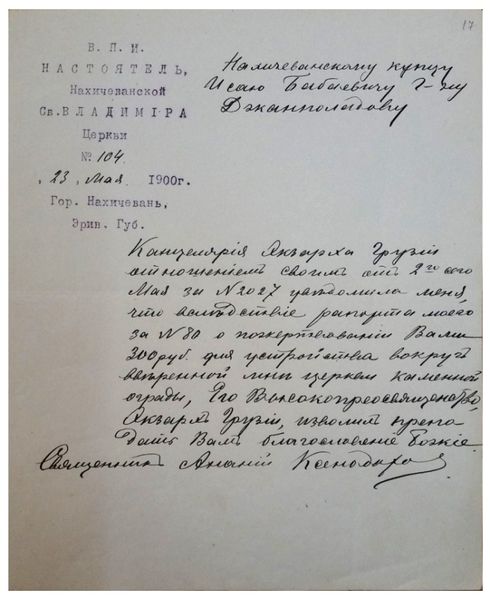 17
В. П. И.
НАСТОЯТЕЛЬ,
Нахичеванской
Св. ВЛАДИМІРА
Церкви
№ 104
„ 23 „ Мая 1900г.
Гор. Нахичевань,
Эрив. Губ.
Нахичеванскому купцу
Исаю Бабаевичу Г-ну
Джанполадову
Канцелярія Экзарха Грузіи
отношеніемъ своимъ отъ 2го сего
Мая за №2027 увѣдомила меня,
что вслѣдствіе рапорта моего
за №80 о пожертвованіи Вами
300 руб. для устройства вокругъ
ввѣренной мнѣ церкви каменной
ограды, Его Высокопреосвященство,
Экзархъ Грузіи, изволилъ препо-
дать Вамъ благословеніе Божіе.
Священникъ Ананій